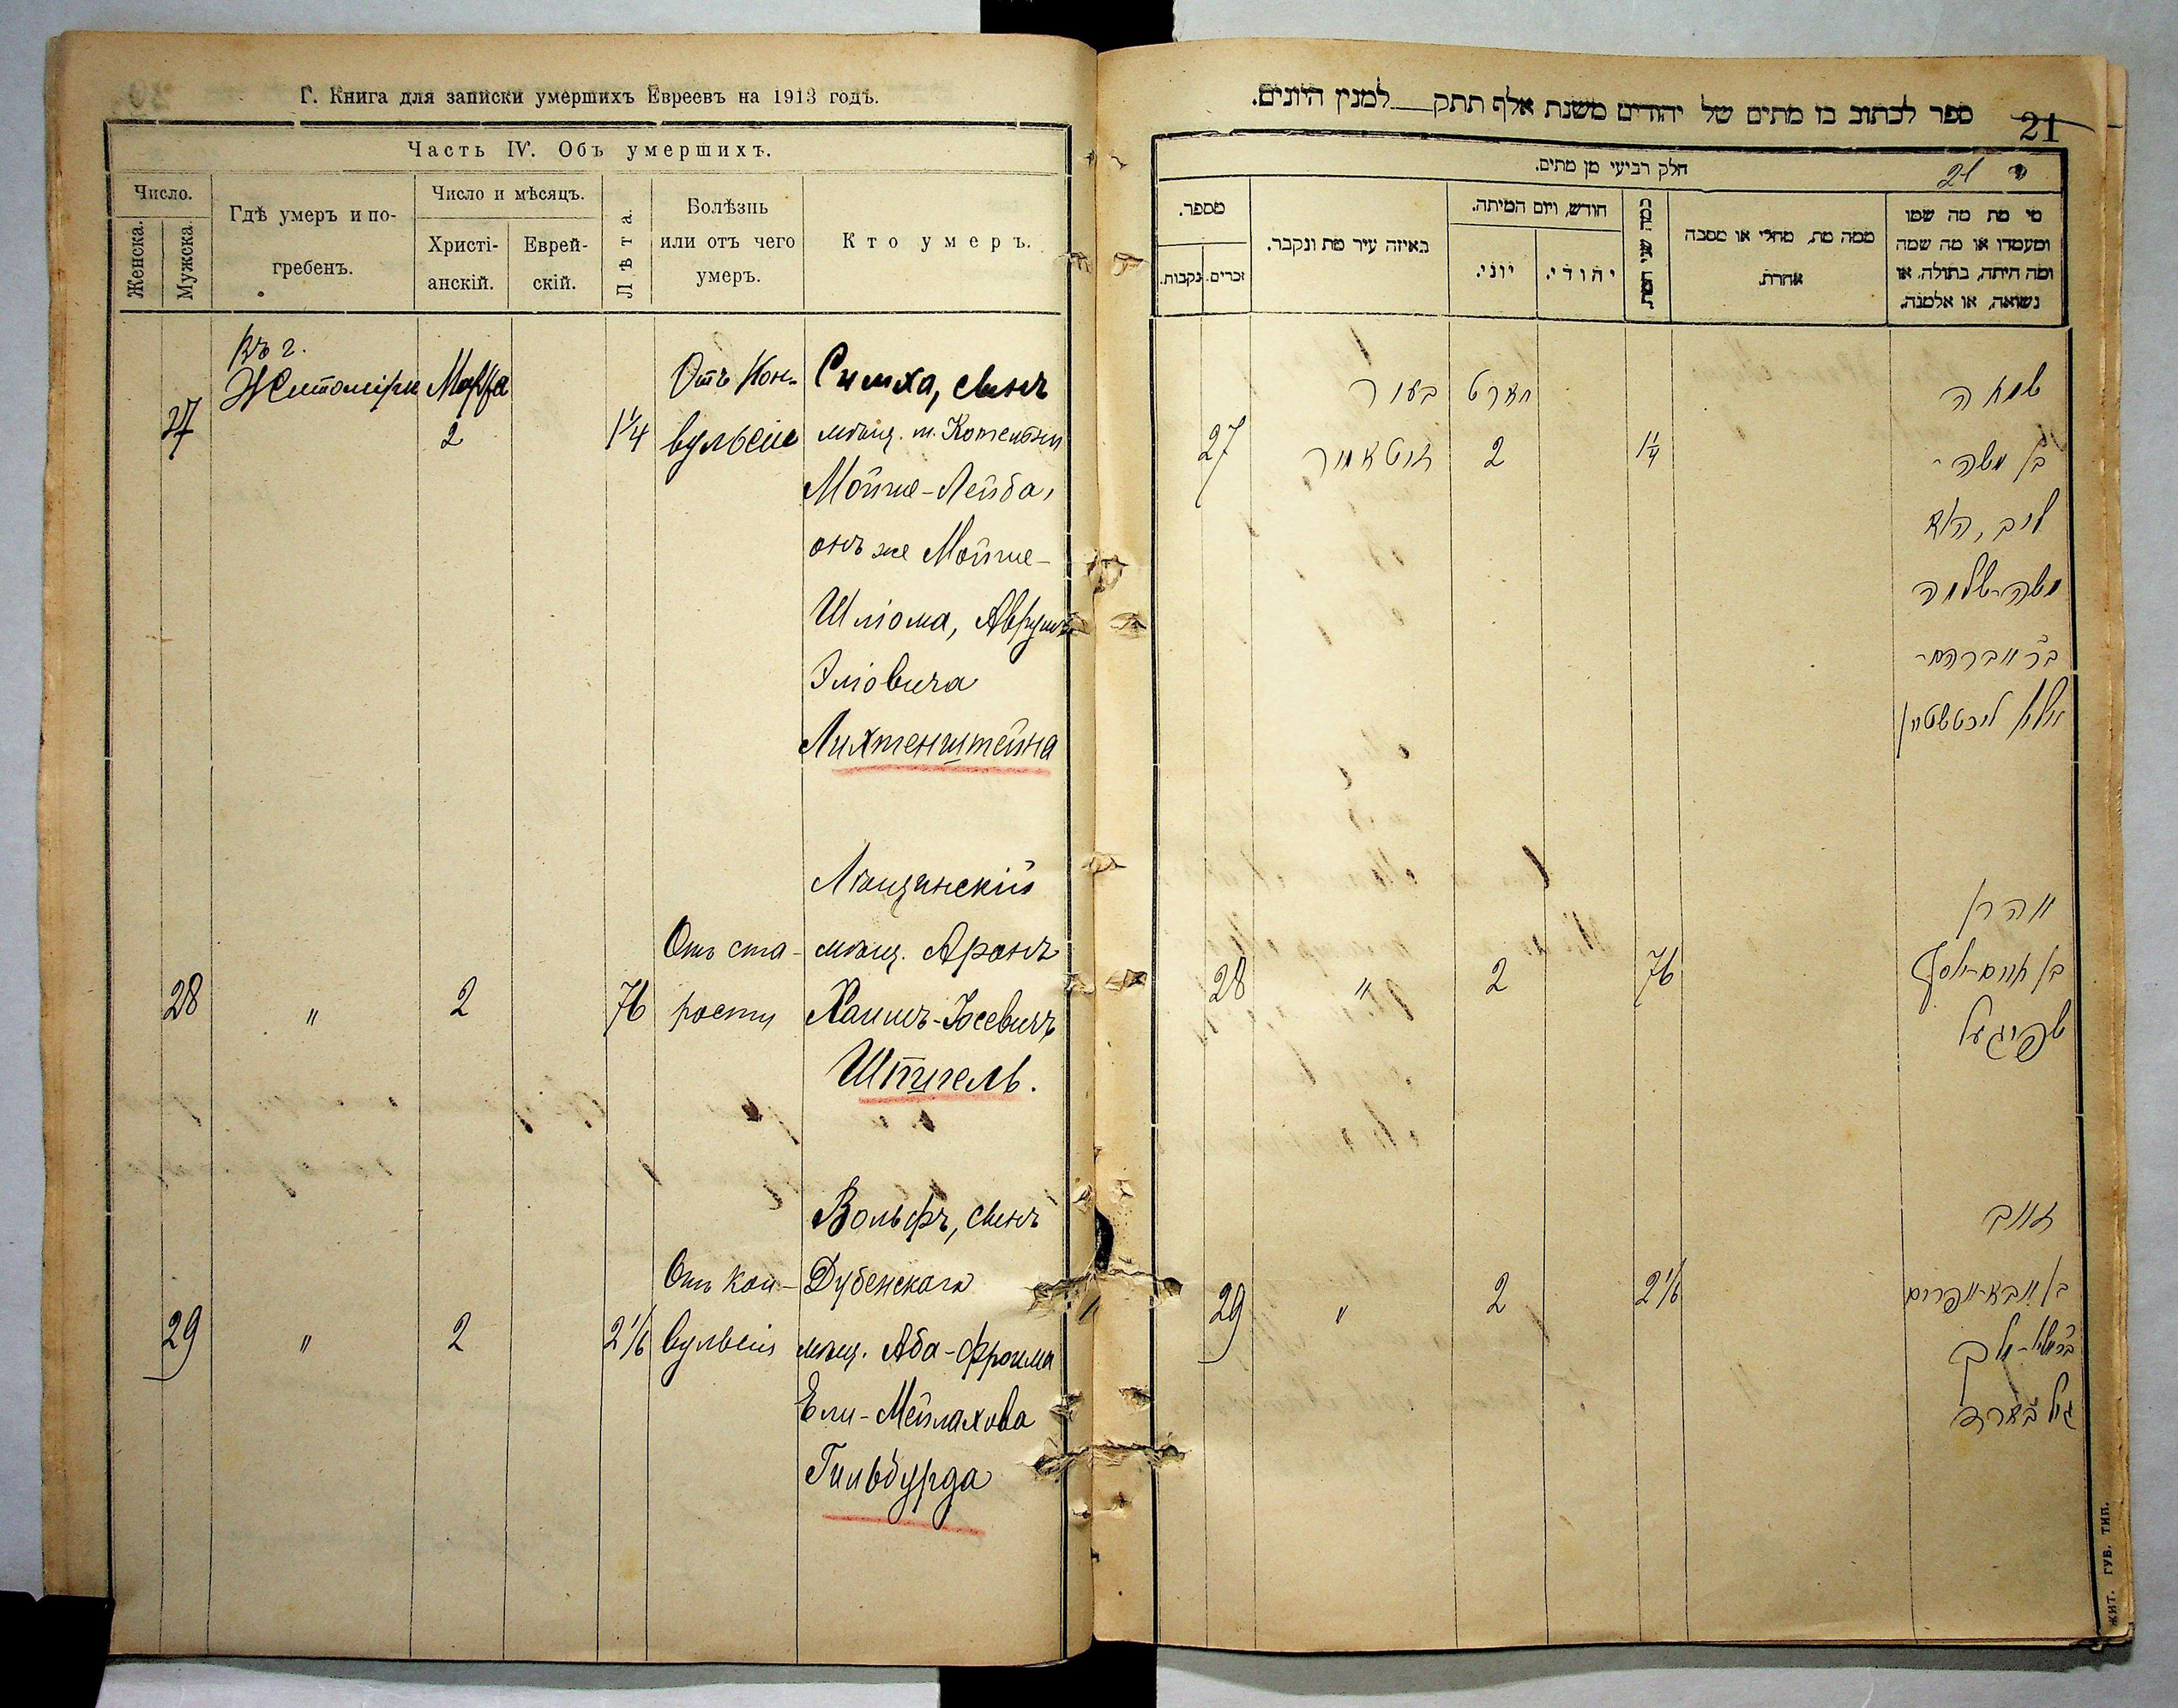 Г. Книга для записки умершихъ Евреевъ на 1913 годъ.
Часть IV. Объ умершихъ.
Число.
Женска.
Мужска.
Гдѣ умеръ и по-
гребенъ.
Число и мѣсяцъ.
Христі-
анскій.
Еврей-
скій.
Лѣта.
Болѣзнь
или отъ чего
умеръ.
Кто умеръ.
27
Въ г.
Житомірѣ
Марта
2
1 1/4
Отъ Кон-
вульсіи
Симха, сынъ
мѣщ. м. Котельни
Мойше-Лейба,
онъ же Мойше-
Шліома, Аврумъ
Эліовича
Лихтенштейна
28
"
2
76
Отъ ста-
рости
мѣщ. Аронъ
Хаимъ-Іосевичъ
Шпигель.
29
"
2
2 1/6
Отъ кон-
вульсіи
Вольфъ, сынъ
Дубенскаго
мѣщ. Аба-Фроима
Ели-Мейлахова
Гильбурда
ספר לכתוב בו מתים של יהודים משנת אלף תתק למנין היונים.
21
חלק רביעי מן מתים.
21
מספר.
נקבות.
זכרים.
באיזה עיר מת ונקבר.
חודש, ויום המיתה.
יוני.
יהודי.
כמה שני המת.
ממה מת, מחלי או מסבה
אחרת.
מי מת מה שמו
ומעמדו או מה שמה
ומה היתה, בתולה, או
נשואה, או אלמנה.
27
בעיר
זיטאמיר
מארט
2
1 1/4
שמחה
בן משה-
ליב, הוא
משה-שלמה
בר אברהם-
אליי ליכטשטיין
28
"
2
76
אהרן
בן חיים-יוסף
שפיגעל
29
"
2
2 1/6
זאב
בן אבא-אפרים
גילבארד
ЖИТ. ГУБ. ТИП.